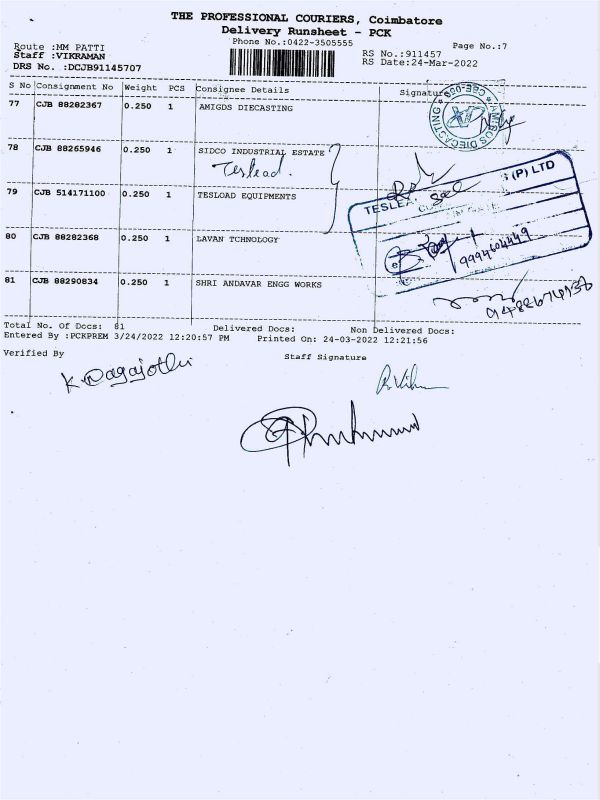 THE PROFESSIONAL COURIERS, Coimbatore
Delivery Runsheet - PCK
Phone No.:0422-3505555
Page No.:7
Route :MM PATTI
Staff :VIKRAMAN
DRS No. :DCJB91145707
RS No.:911457
RS Date:24-Mar-2022
S No Consignment No Weight PCS Consignee Details Signature
77 CJB 88282367 0.250 1 AMIGDS DIECASTING
78 CJB 88265946 0.250 1 SIDCO INDUSTRIAL ESTATE
Teslead.
79 CJB 514171100 0.250 1 TESLOAD EQUIPMENTS
80 CJB 88282368 0.250 1 LAVAN TCHNOLOGY
81 CJB 88290834 0.250 1 SHRI ANDAVAR ENGG WORKS
DIECASTING
(P) LTD
9994604449
Total No. Of Docs: 81 Delivered Docs: Non Delivered Docs:
Entered By :PCKPREM 3/24/2022 12:20:57 PM Printed On: 24-03-2022 12:21:56
Verified By Staff Signature